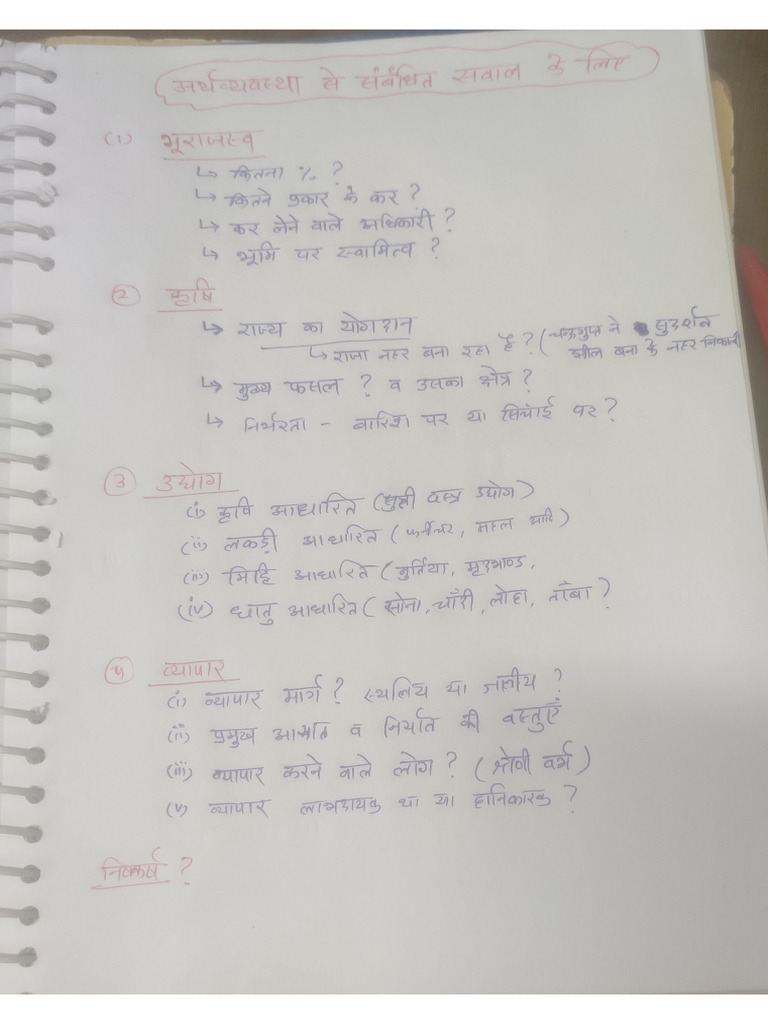 अर्थव्यवस्था से संबंधित सवाल के लिए
(1) भूराजस्व
↳ कितना % ?
↳ कितने प्रकार के कर ?
↳ कर लेने वाले अधिकारी ?
↳ भूमि पर स्वामित्व ?
(2) कृषि
↳ राज्य का योगदान
↳ राजा नहर बना रहा है ? (चन्द्रगुप्त ने सुदर्शन
झील बना के नहर निकाली
↳ मुख्य फसल ? व उसका क्षेत्र ?
↳ निर्भरता - बारिश पर या सिंचाई पर ?
(3) उद्योग
(i) कृषि आधारित (सूती वस्त्र उद्योग)
(ii) लकड़ी आधारित (फर्नीचर, महल आदि)
(iii) मिट्टि आधारित (मुर्तिया, मृदभाण्ड,
(iv) धातु आधारित (सोना, चाँदी, लोहा, ताँबा ?
(4) व्यापार
(i) व्यापार मार्ग ? स्थलिय या जलीय ?
(ii) प्रमुख आयात व निर्यात की वस्तुएँ
(iii) व्यापार करने वाले लोग ? (श्रेणी वर्ग)
(v) व्यापार लाभदायक था या हानिकारक ?
निष्कर्ष ?